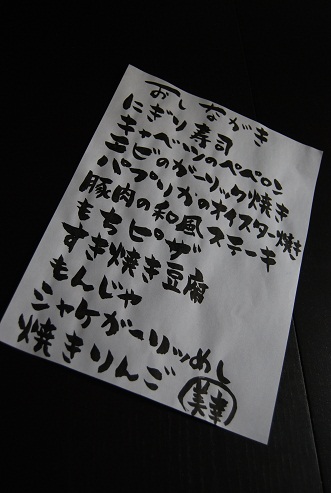 おしながき
にぎり寿司
キャベツのペペロン
エビのガーリック焼き
パプリカのオイスター焼き
豚肉の和風ステーキ
もちピザ
すき焼き豆腐
もんじゃ
シャケガーリッめし
焼きりんご
美幸